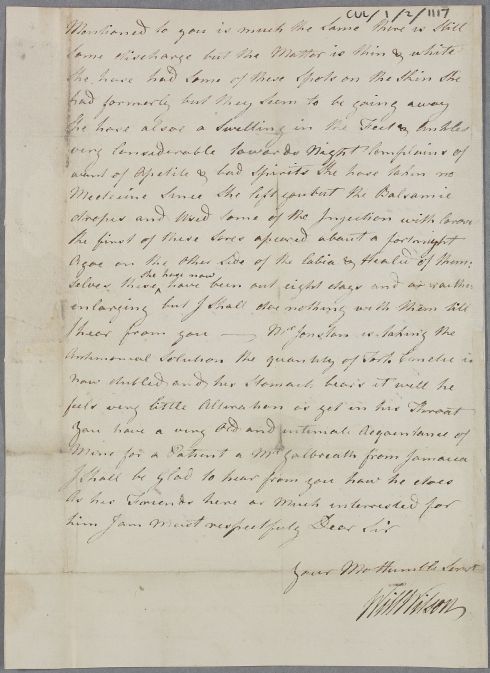 CUL/1/2/1117
Mentioned to you is much the same there is still
some discharge but the Matter is thin & white
She hase had some of these spots on the Skin She
had formerly but they seem to be going away
She hase alsoe a Swelling in the Feet & Ankles
very Considerable towards Night Complains of
want of Apetite & bad Spirits She hase taken no
Medecine sence She left you but the Balsamic
dropes and Used some of the Injection with
the first of these Sores apeared about a fortnight
Agoe on the other side of the Labia & Healed of them:
selves, these she hase now have been out eight days and are rather
enlarging but I Shall doe nothing with them till
I hear from you — Mr Jonston is taking the
Antimonial Solution the quantity of Emetic is
now dubled and his Stomach bears it well he
feels very little Alteration as yet in his Throat
You have a very Old and intimate Acquantance of
Mine for a Patient a Mr Galbreath from Jamaca
I Shall be Glad to hear from you how he does
As his Friends here are Much interested for
him I am Most respectfuly Dear Sir
Your Mo Humble Servt
Will Wilson